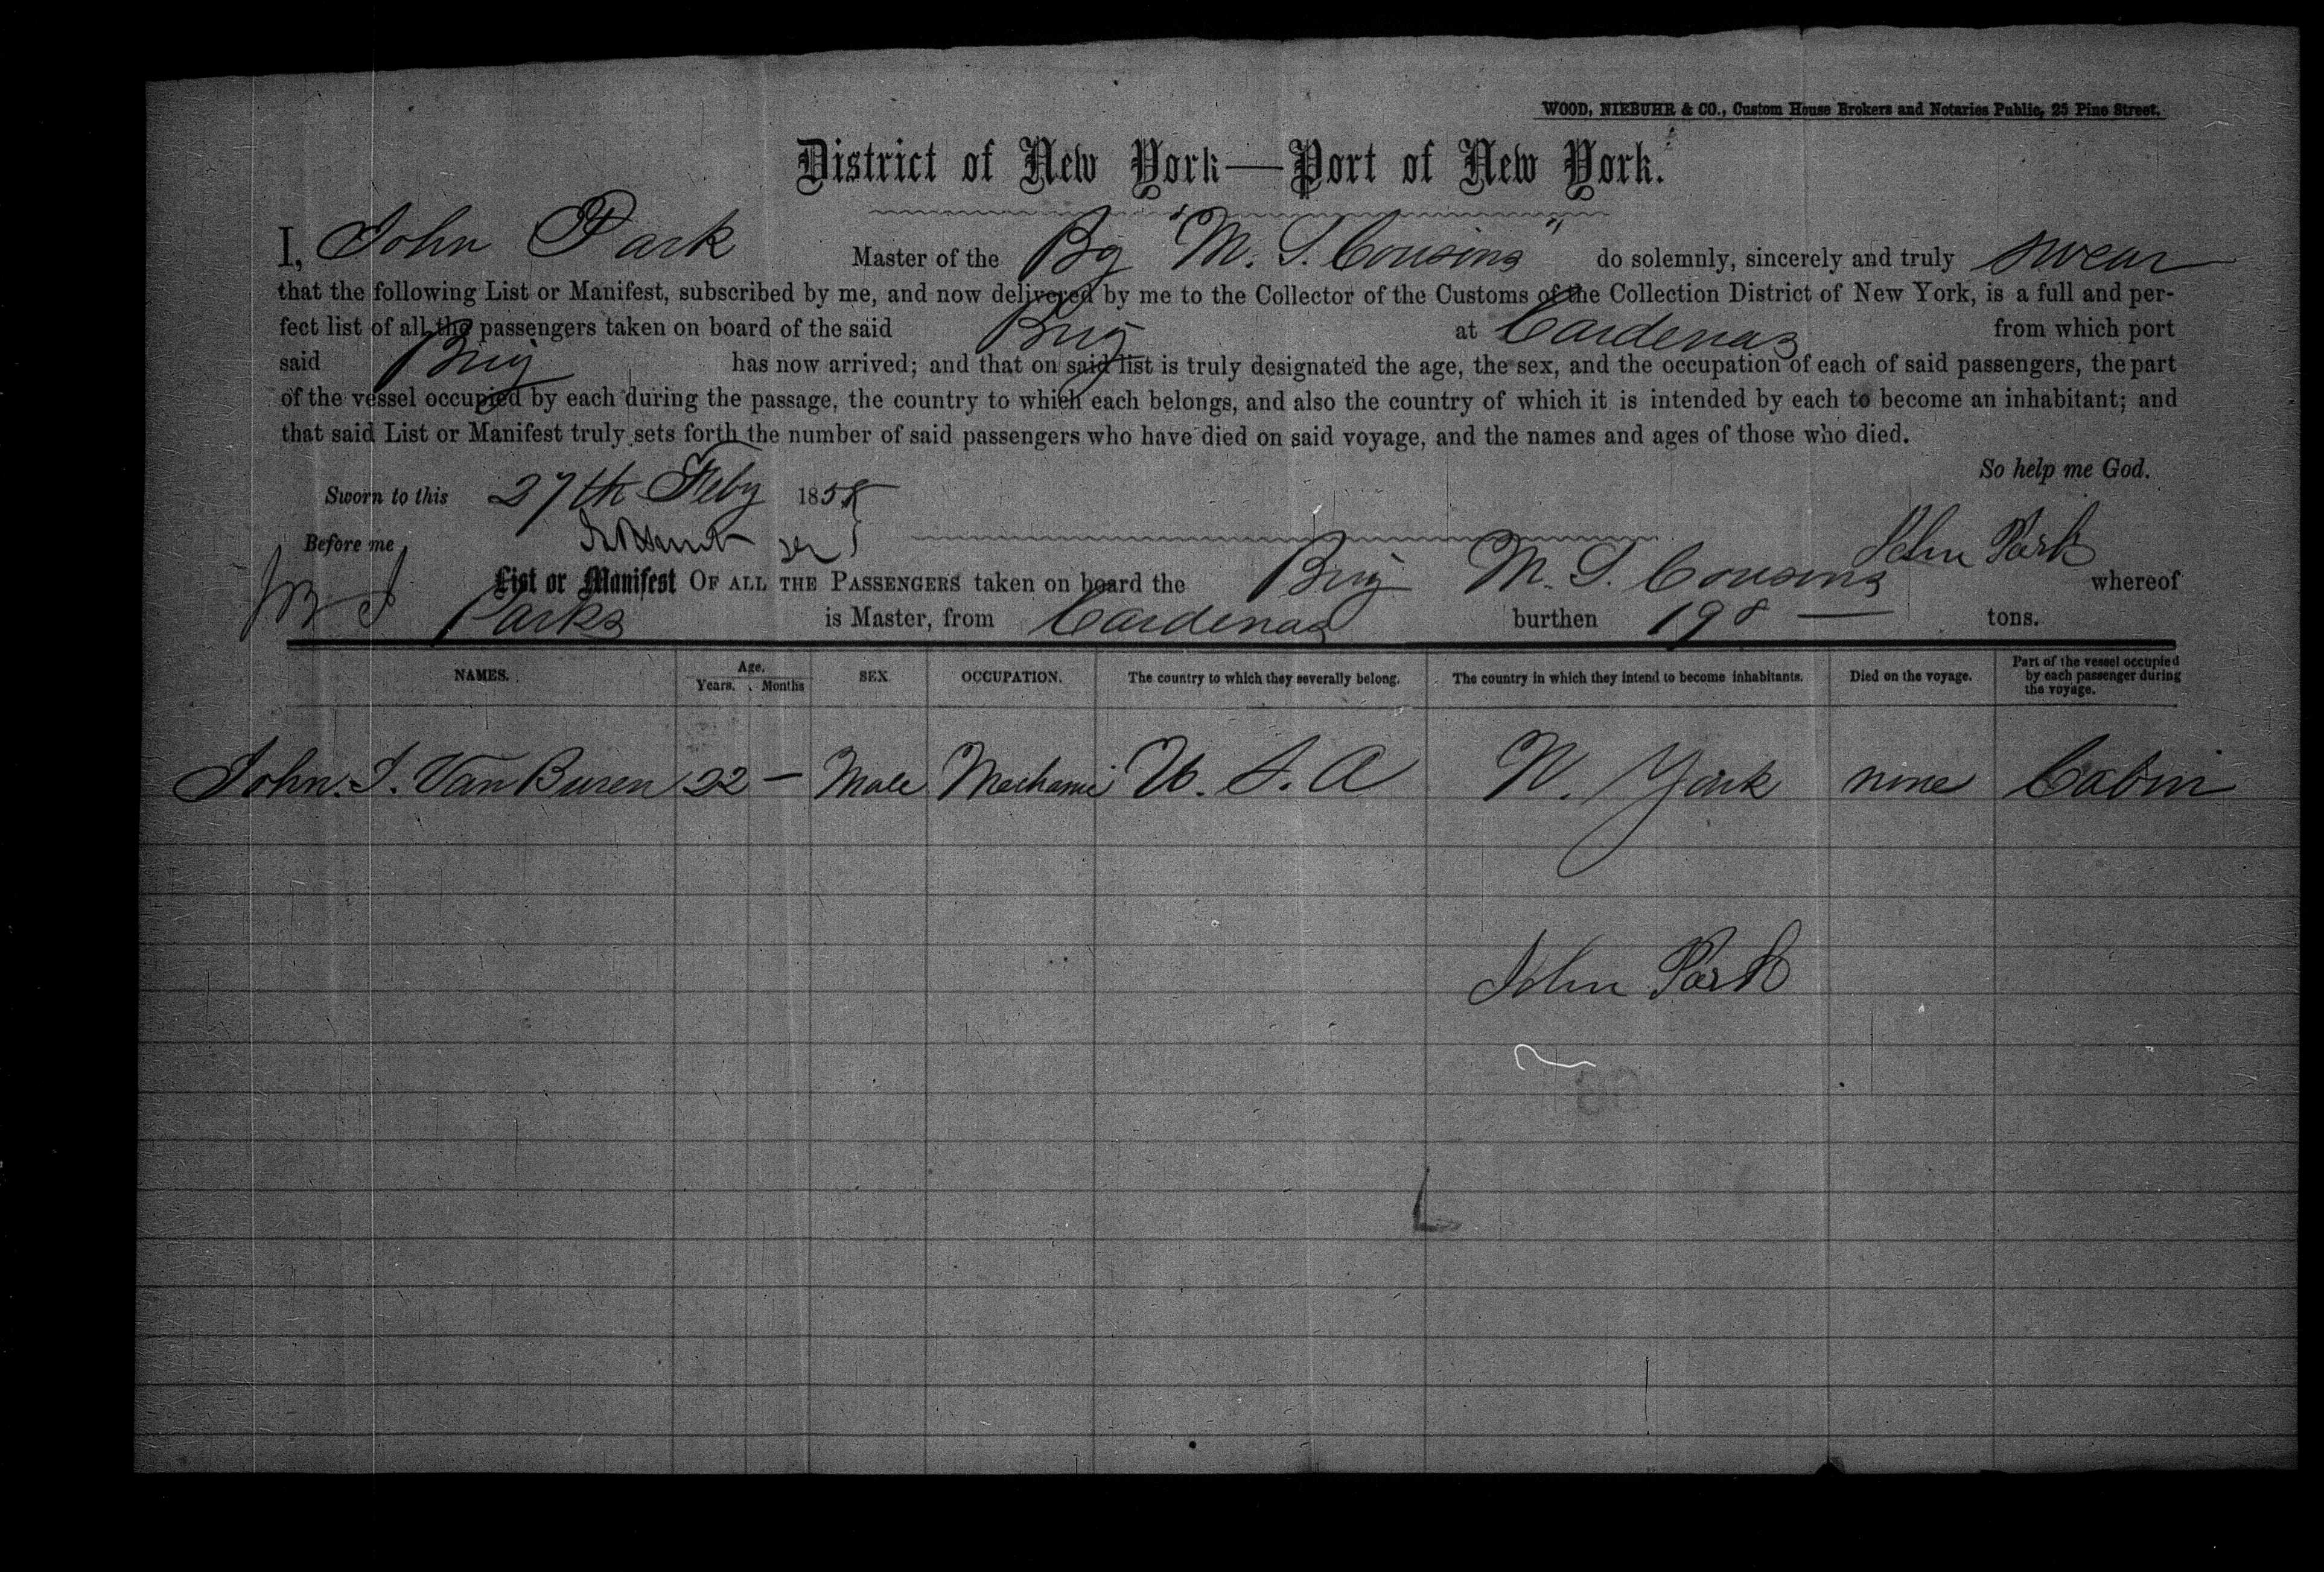 WOOD, NIEBUHR & CO., Custom House Brokers and Notaries Public, 25 Pine Street.
District of New York—Port of New York.
I, John Park Master of the Bg "M. S. Cousins" do solemnly, sincerely and truly swear
that the following List or Manifest, subscribed by me, and now delivered by me to the Collector of the Customs of the Collection District of New York, is a full and per-
fect list of all the passengers taken on board of the said Brig at Cardenas from which port
said Brig has now arrived; and that on said list is truly designated the age, the sex, and the occupation of each of said passengers, the part
of the vessel occupied by each during the passage, the country to which each belongs, and also the country of which it is intended by each to become an inhabitant; and
that said List or Manifest truly sets forth the number of said passengers who have died on said voyage, and the names and ages of those who died.
So help me God.
Sworn to this 27th Feby 1858
Before me John Park
List or Manifest OF ALL THE PASSENGERS taken on board the Brig M. S. Cousins whereof
Parks is Master, from Cardenas burthen 198 — tons.
NAMES. Age. Years. Months SEX OCCUPATION. The country to which they severally belong. The country in which they intend to become inhabitants. Died on the voyage. Part of the vessel occupied
by each passenger during
the voyage.
John. S. Van Buren 22 — Male Mechanic U. S. A N. York none Cabin
John Park